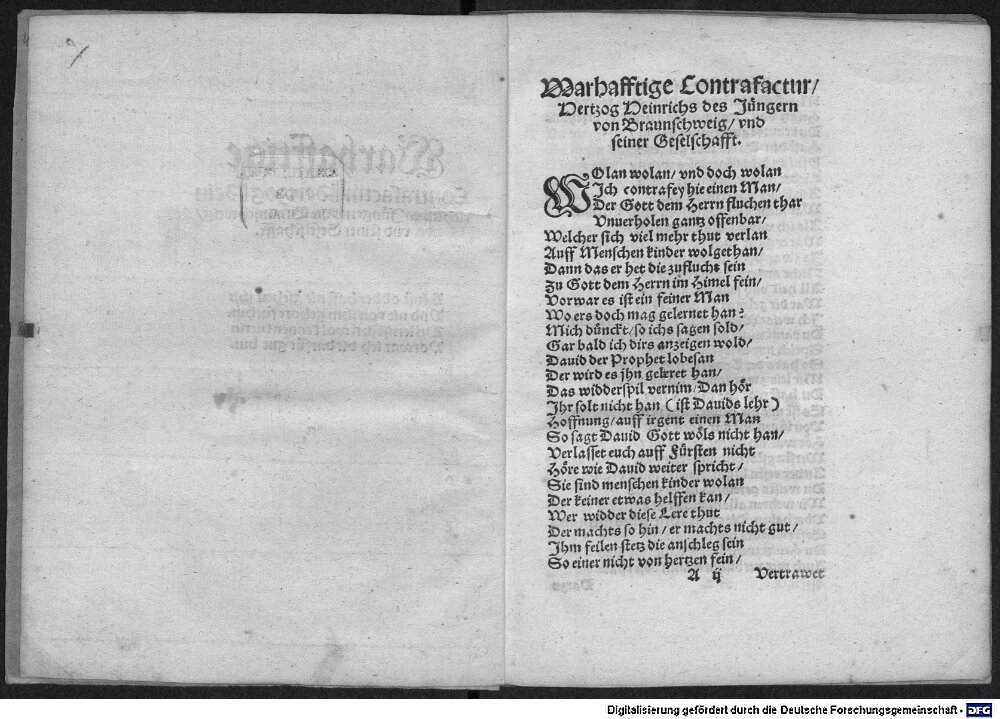 Warhafftige Contrafactur/
Hertzog Heinrichs des Jüngern
von Braunschweig/ vnd
seiner Geselschafft.
WOlan wolan/ vnd doch wolan
Ich contrafey hie einen Man/
Der Gott dem Herrn fluchen thar
Vnuerholen gantz offenbar/
Welcher sich viel mehr thut verlan
Auff Menschen kinder wolgethan/
Dann das er het die zuflucht sein
Zu Gott dem Herrn im Himel fein/
Vorwar es ist ein feiner Man
Wo ers doch mag gelernet han?
Mich dünckt/ so ichs sagen sold/
Gar bald ich dirs anzeigen wold/
Dauid der Prophet lobesan
Der wird es jhn geleret han/
Das widderspil vernim/ Dan hör
Ihr solt nicht han (ist Dauids lehr)
Hoffnung/ auff irgent einen Man
So sagt Dauid Gott wöls nicht han/
Verlasset euch auff Fürsten nicht
Höre wie Dauid weiter spricht/
Sie sind menschen kinder wolan
Der keiner etwas helffen kan/
Wer widder diese Lere thut
Der machts so hin/ er machts nicht gut/
Ihm feilen stetz die anschleg sein
So einer nicht von hertzen fein/
A ij Vertrawet
Digitalisierung gefördert durch die Deutsche Forschungsgemeinschaft - DFG